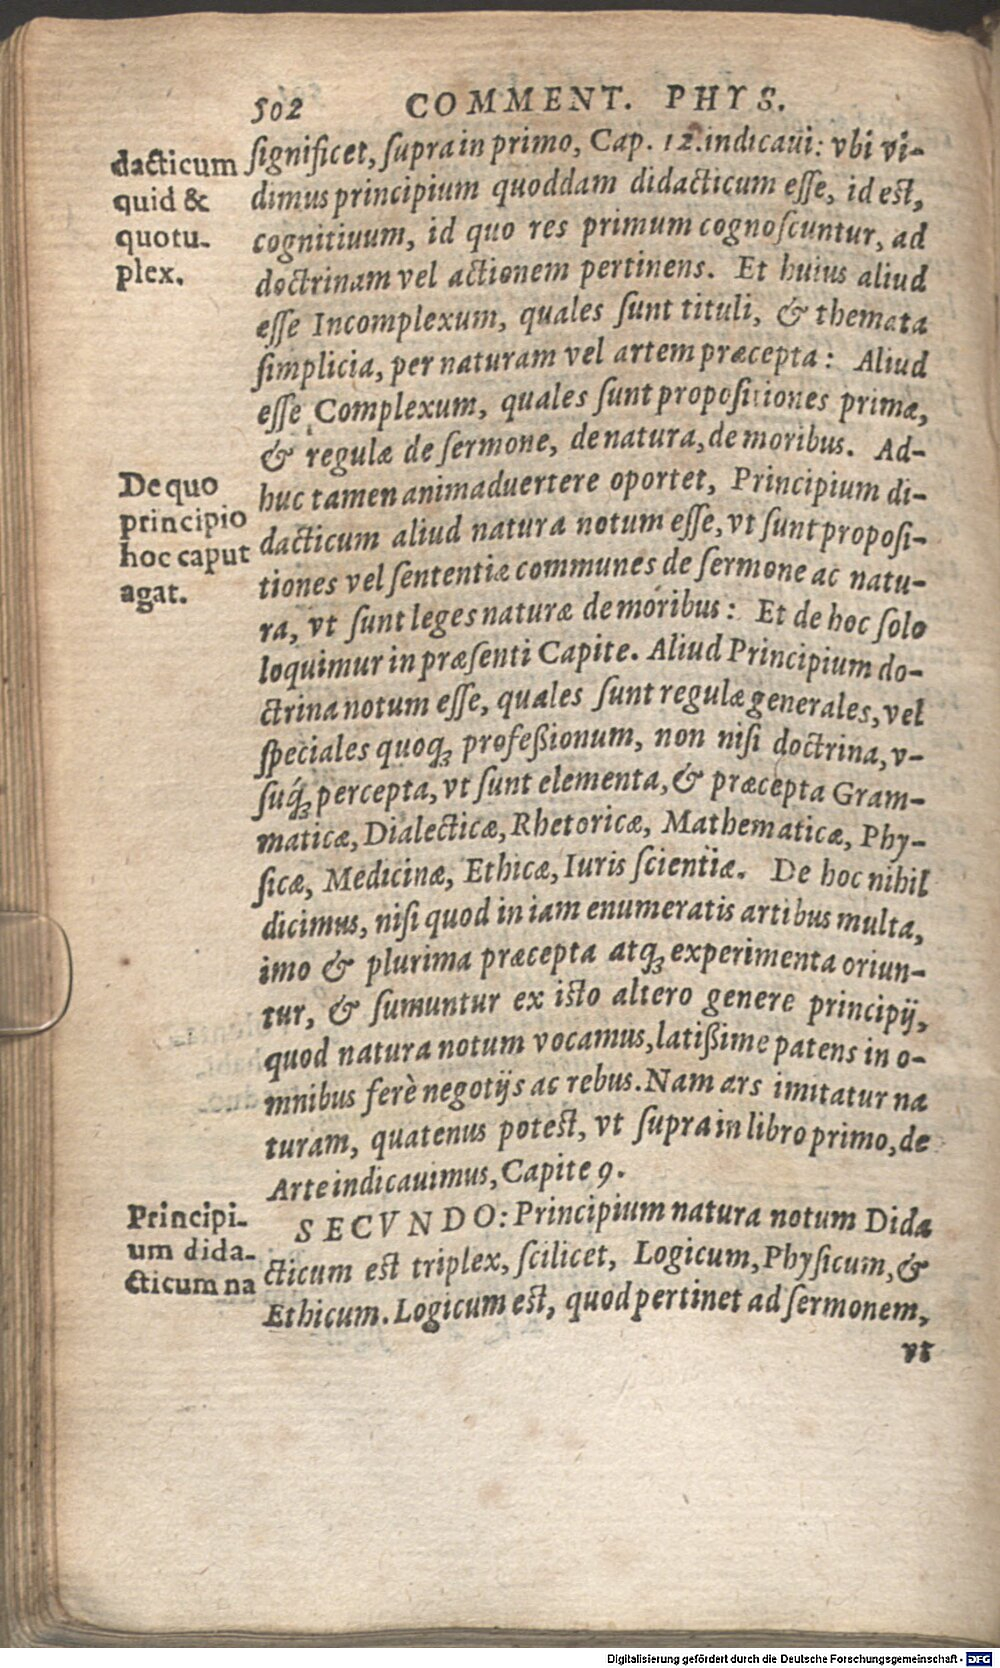 502 COMMENT. PHYS.
dacticum
quid &
quotu-
plex.
significet, supra in primo, Cap. 12. indicaui: vbi vi-
dimus principium quoddam didacticum esse, id est,
cognitiuum, id quo res primum cognoscuntur, ad
doctrinam vel actionem pertinens. Et huius aliud
esse Incomplexum, quales sunt tituli, & themata
simplicia, per naturam vel artem præcepta: Aliud
esse Complexum, quales sunt propositiones primæ,
& regulæ de sermone, de natura, de moribus. Ad-
De quo
principio
hoc caput
agat.
huc tamen animaduertere oportet, Principium di-
dacticum aliud natura notum esse, vt sunt proposi-
tiones vel sententiæ communes de sermone ac natu-
ra, vt sunt leges naturæ de moribus: Et de hoc solo
loquimur in præsenti Capite. Aliud Principium do-
ctrina notum esse, quales sunt regulæ generales, vel
speciales quoqꝫ profeßionum, non nisi doctrina, v-
suq́ꝫ percepta, vt sunt elementa, & præcepta Gram-
maticæ, Dialecticæ, Rhetoricæ, Mathematicæ, Phy-
sicæ, Medicinæ, Ethicæ, Iuris scientiæ. De hoc nihil
dicimus, nisi quod in iam enumeratis artibus multa,
imo & plurima præcepta atqꝫ experimenta oriun-
tur, & sumuntur ex isto altero genere principij,
quod natura notum vocamus, latißime patens in o-
mnibus ferè negotijs ac rebus. Nam ars imitatur na
turam, quatenus potest, vt supra in libro primo, de
Arte indicauimus, Capite 9.
Principi-
um dida-
cticum na
SECVNDO: Principium natura notum Dida
cticum est triplex, scilicet, Logicum, Physicum, &
Ethicum. Logicum est, quod pertinet ad sermonem,
vt
Digitalisierung gefördert durch die Deutsche Forschungsgemeinschaft - DFG